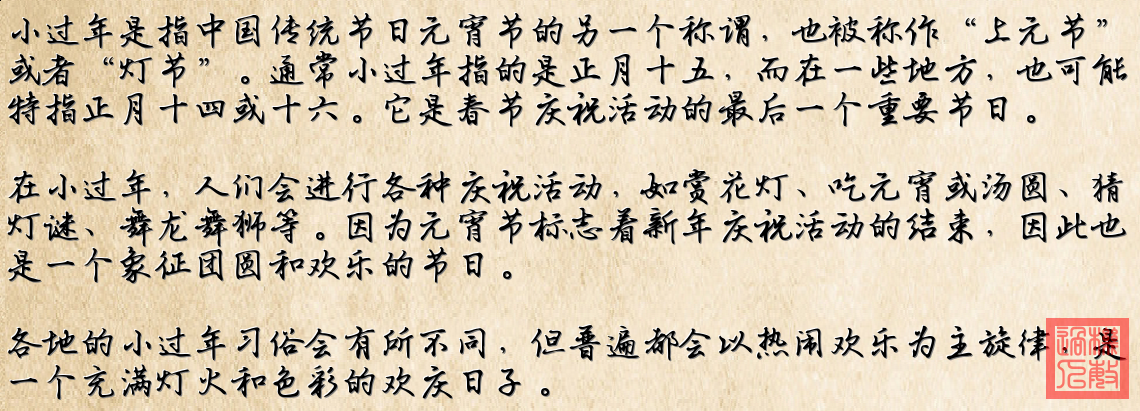 小过年是指中国传统节日元宵节的另一个称谓，也被称作“上元节”
或者“灯节”。通常小过年指的是正月十五，而在一些地方，也可能
特指正月十四或十六。它是春节庆祝活动的最后一个重要节日。
在小过年，人们会进行各种庆祝活动，如赏花灯、吃元宵或汤圆、猜
灯谜、舞龙舞狮等。因为元宵节标志着新年庆祝活动的结束，因此也
是一个象征团圆和欢乐的节日。
各地的小过年习俗会有所不同，但普遍都会以热闹欢乐为主旋律，是
一个充满灯火和色彩的欢庆日子。